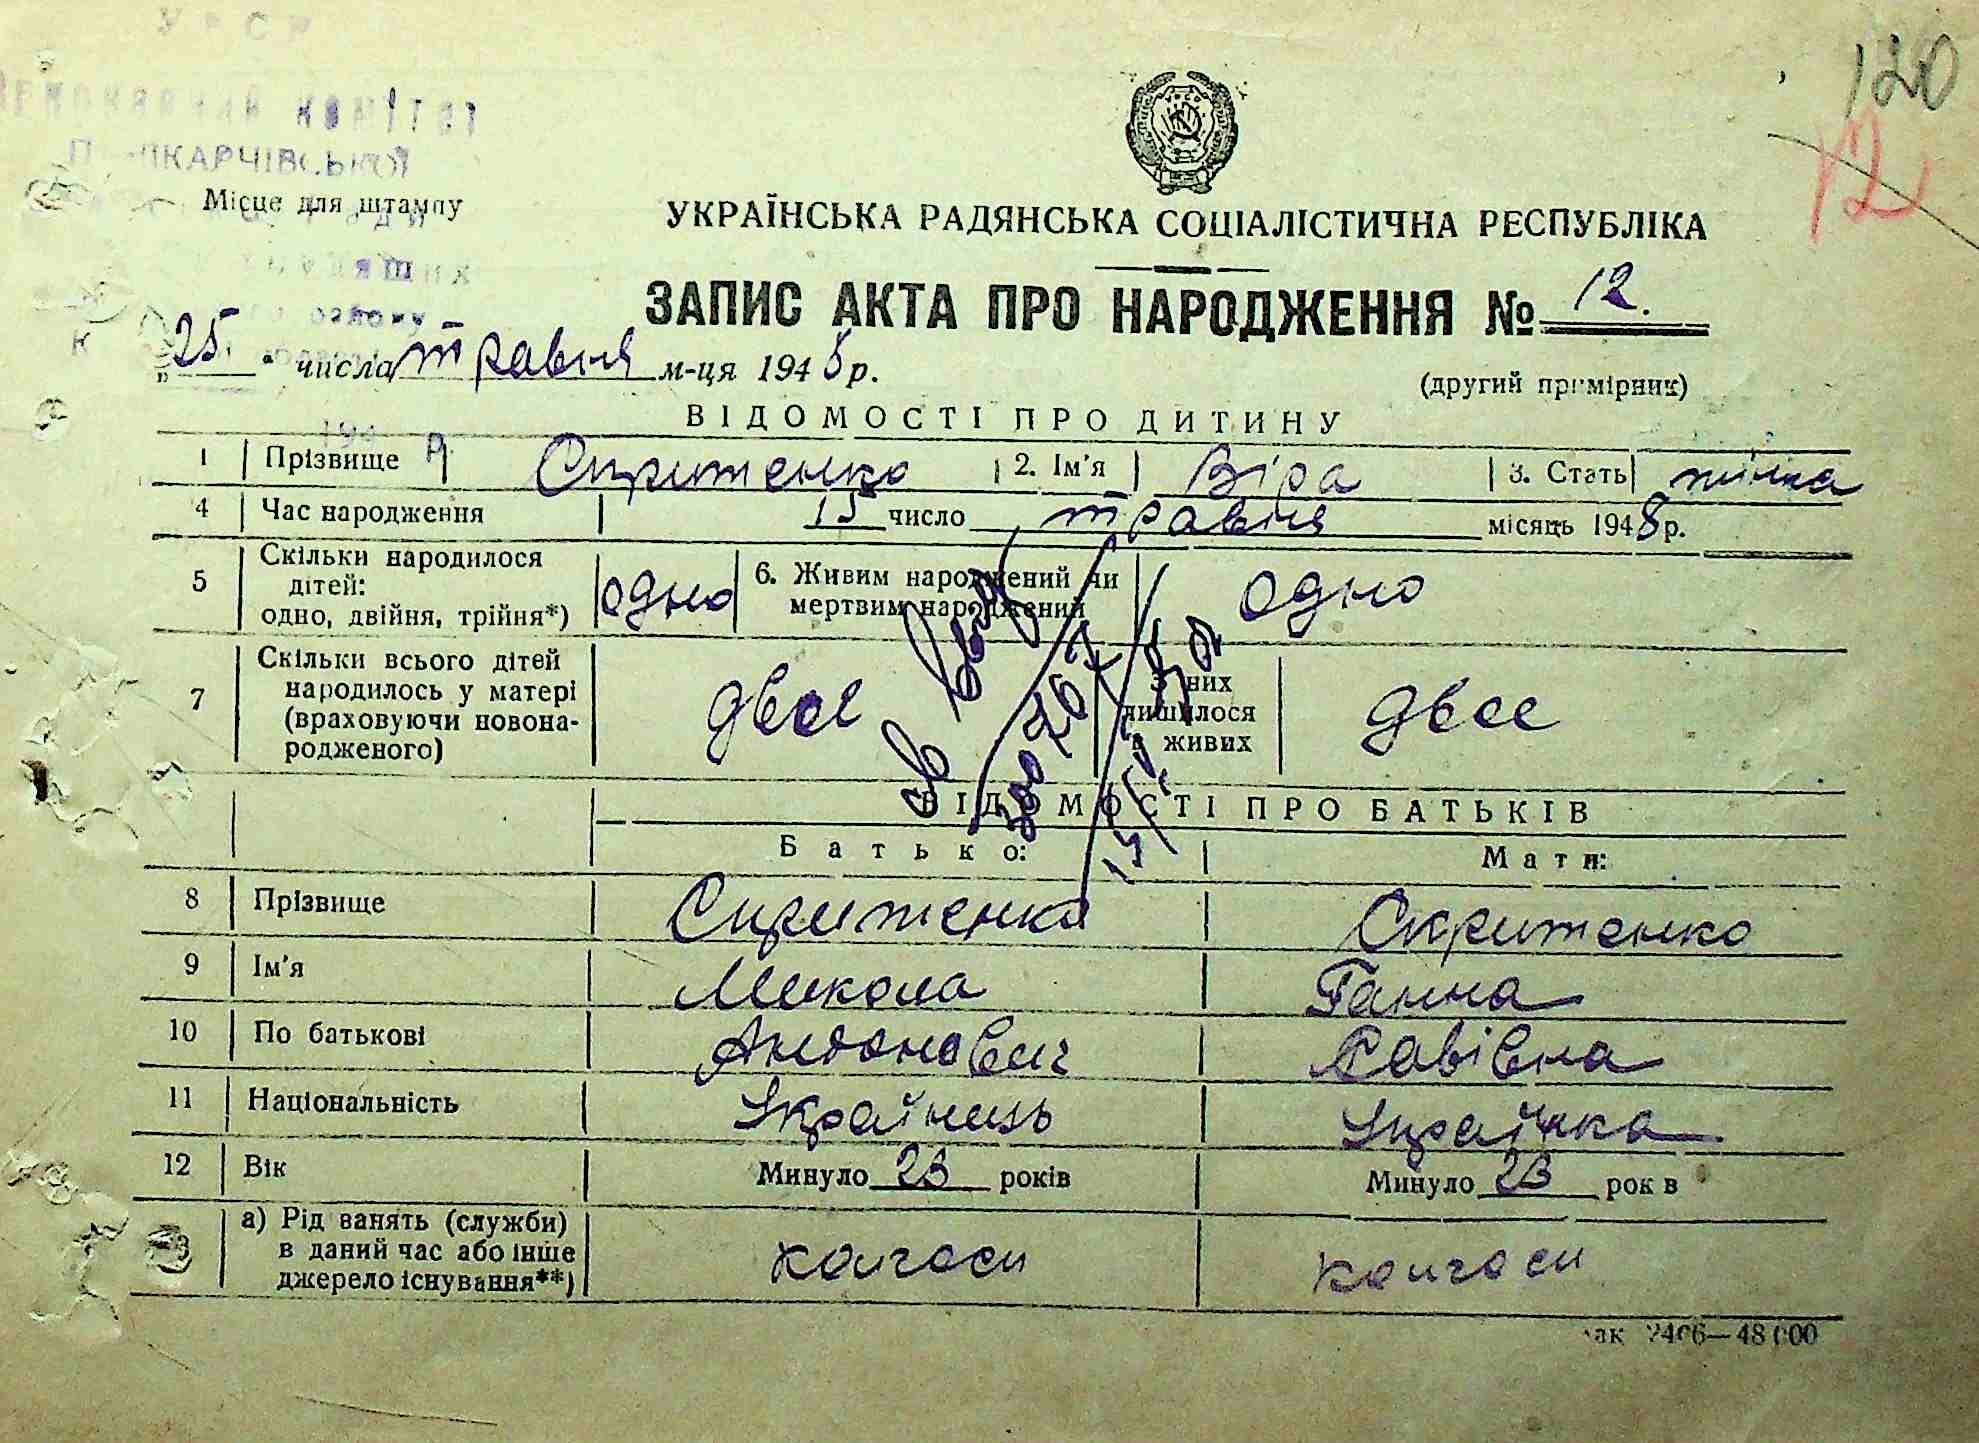 120
12
УРСР
комітет
Місце для штампу
УКРАЇНСЬКА РАДЯНСЬКА СОЦІАЛІСТИЧНА РЕСПУБЛІКА
ЗАПИС АКТА ПРО НАРОДЖЕННЯ № 12.
„25“ числа травня м-ця 1948 р.
(другий примірник)
ВІДОМОСТІ ПРО ДИТИНУ
1 Прізвище Скритенко 2. Ім'я Віра 3. Стать жінка
4 Час народження 15 число травня місяць 1948 р.
5 Скільки народилося дітей: одно, двійня, трійня*) одно 6. Живим народжений чи мертвим народжений одно
7 Скільки всього дітей народилось у матері (враховуючи новонародженого) двоє З них лишилося в живих двоє
ВІДОМОСТІ ПРО БАТЬКІВ
Батько: Мати:
8 Прізвище Скритенко Скритенко
9 Ім'я Микола Ганна
10 По батькові Антонович Савівна
11 Національність Українець Українка
12 Вік Минуло 23 років Минуло 23 рок в
а) Рід занять (служби) в даний час або інше джерело існування**) колгосп колгосп
ак 2466—48000